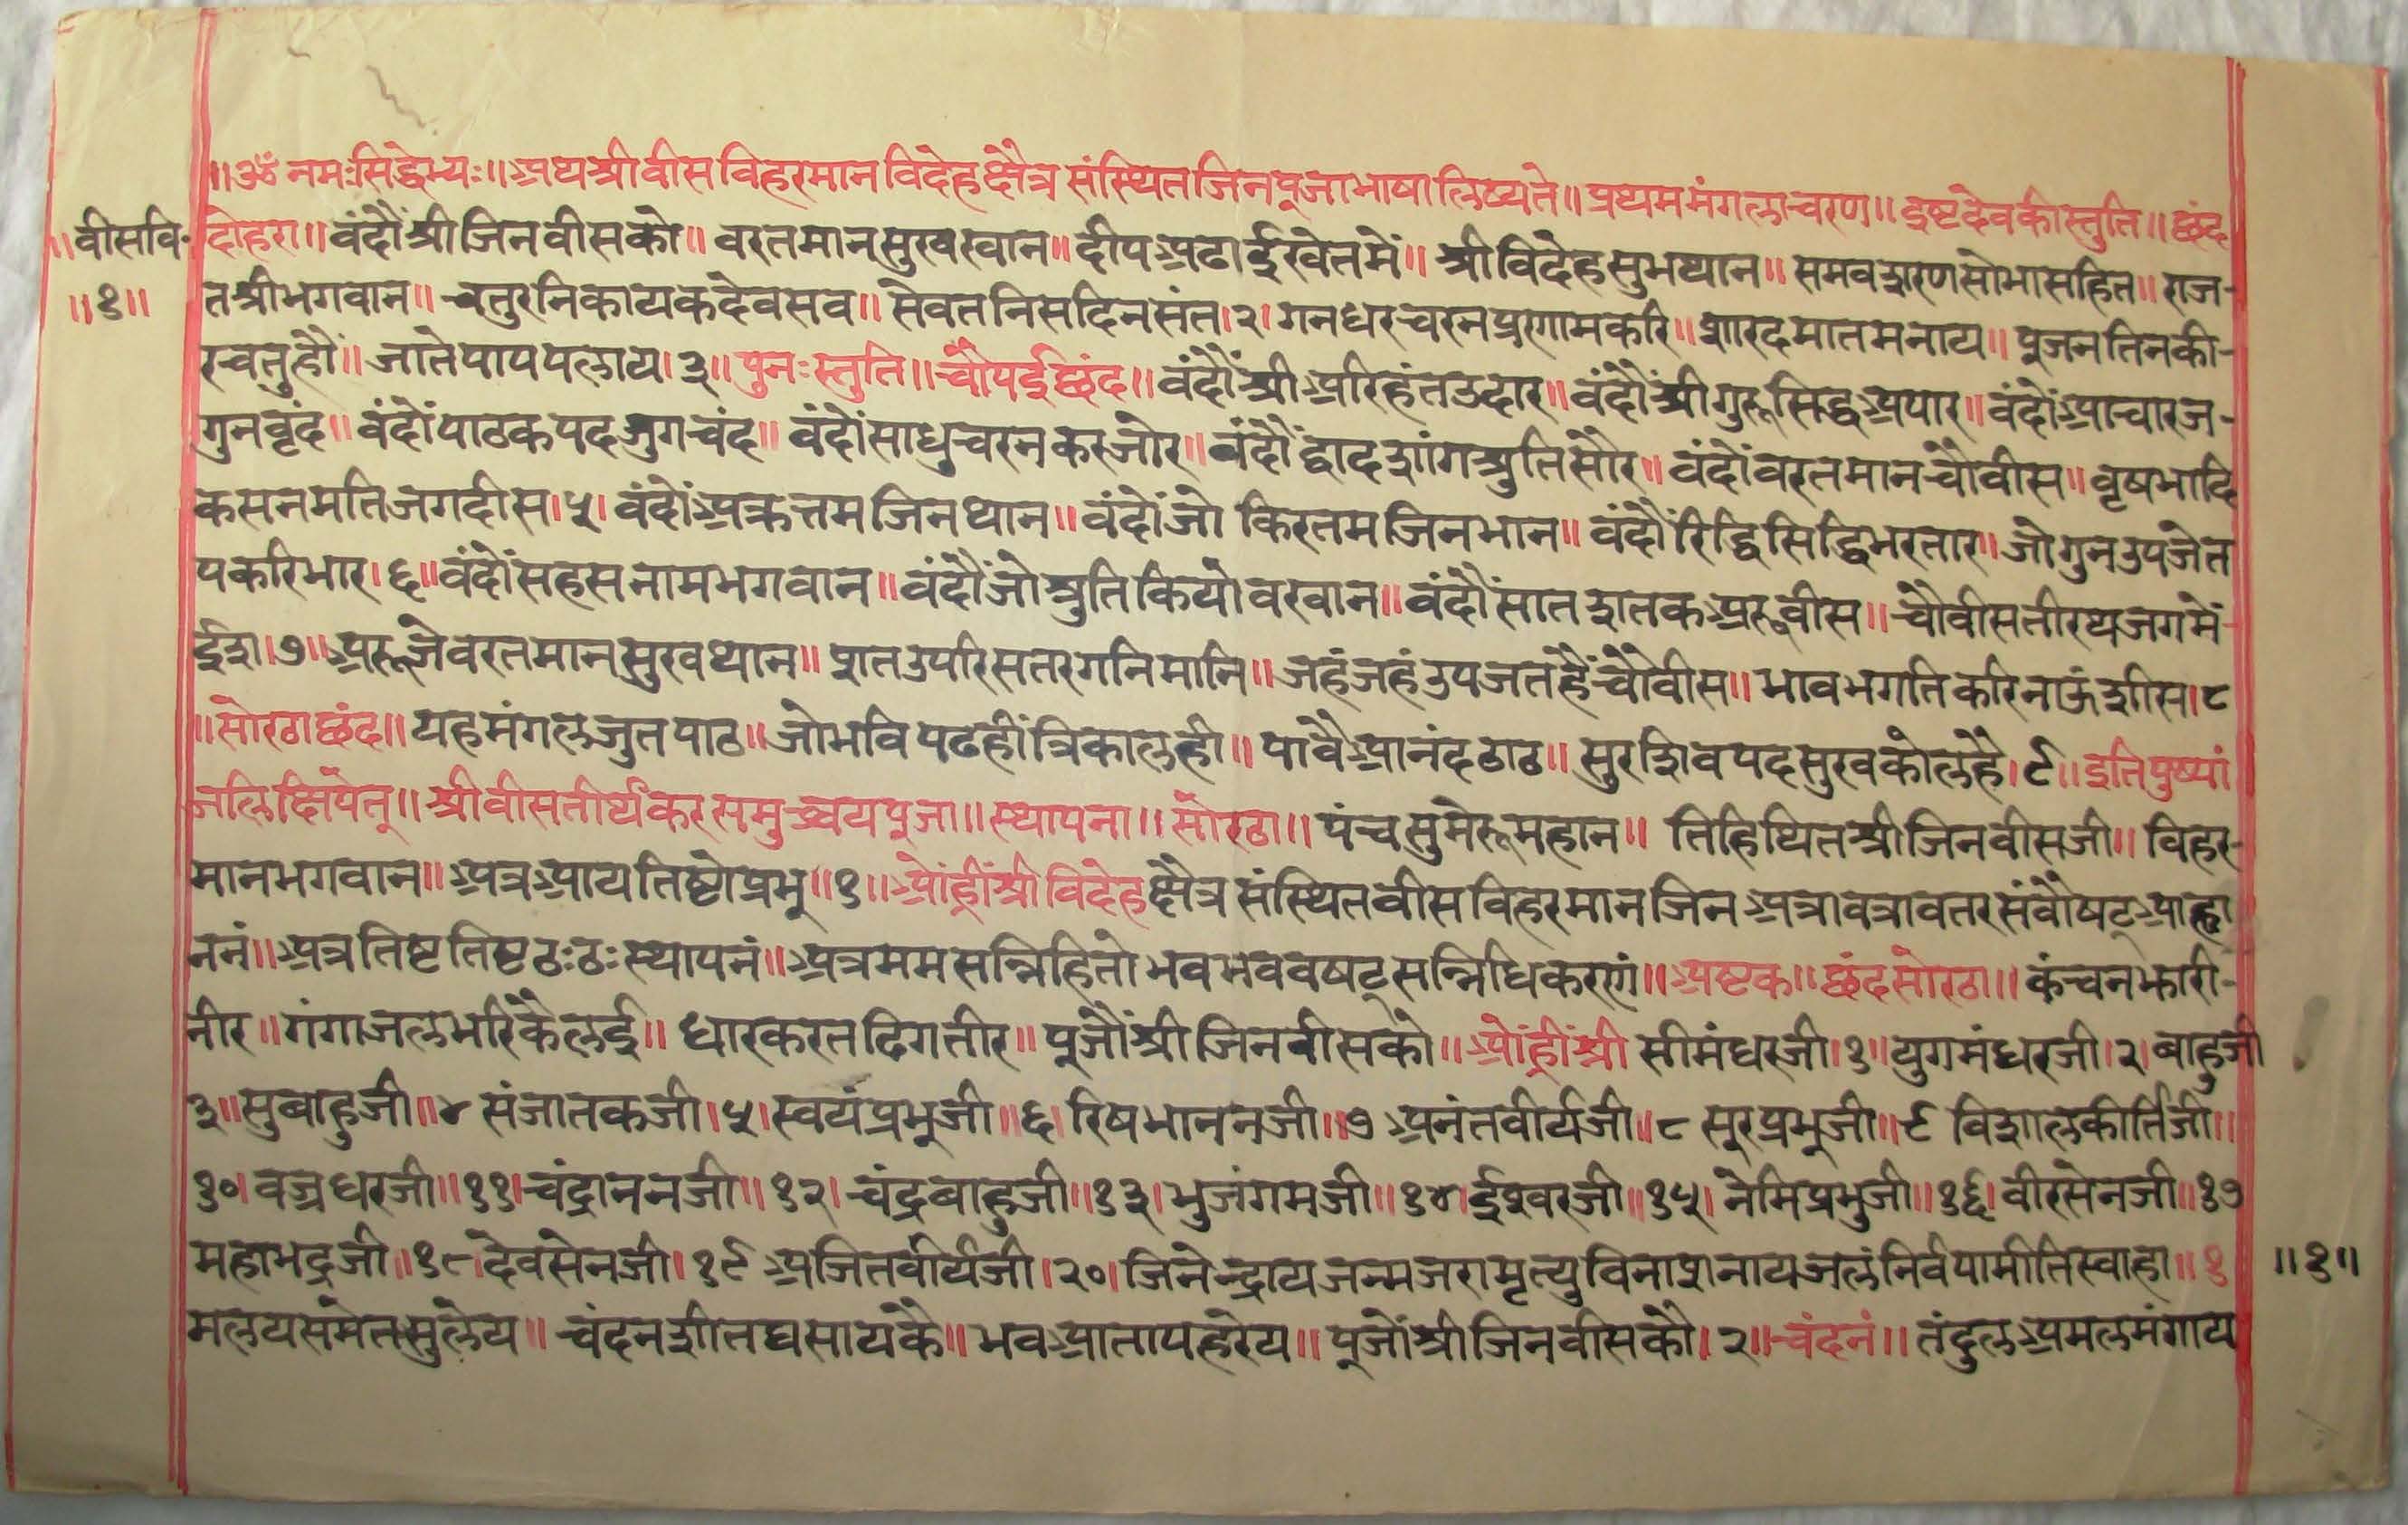 ॥ॐ नमःसिद्धेभ्यः॥अथश्रीवीसविहरमानविदेहक्षैत्रसंस्थितजिनपूजाभाषालिख्यते॥प्रथममंगलाचरण॥इष्टदेवकीस्तुति॥छंद
॥वीसवि- दोहरा॥वंदौंश्रीजिनवीसको॥वरतमानसुखखान॥दीपअढाईखेतमें॥श्रीविदेहसुभथान॥समवशरणसोभासहित॥राज-
॥१॥ तश्रीभगवान॥चतुरनिकायकदेवसव॥सेवतनिसदिनसंत।२।गनधरचरनप्रणामकरि॥शारदमातमनाय॥पूजनतिनकी-
रचतुहौं॥जातेपापपलाय।३॥पुनःस्तुति॥चौपईछंद॥वंदौंश्रीअरिहंतउदार॥वंदौंश्रीगुरूसिद्धअपार॥वंदोंआचारज-
गुनवृंद॥वंदोंपाठकपदजुगचंद॥वंदोंसाधुचरनकरजोर॥वंदौंद्वादशांगश्रुतिसौर॥वंदोंवरतमानचौवीस॥वृषभादि
कसनमतिजगदीस।५।वंदोंअक्रत्तमजिनथान॥वंदोंजो किरतमजिनभान॥वंदौंरिद्धिसिद्धिभरतार॥जोगुनउपजेत
पकरिभार।६॥वंदोंसहसनामभगवान॥वंदौंजोश्रुतिकियोवखान॥वंदौंसातशतकअरूवीस॥चौवीसतीरथजगमें
ईश।७॥अरूजेवरतमानसुखथान॥शतउपरिसतरगनिमानि॥जहंजहंउपजतहैंचौवीस॥भावभगतिकरिनाऊंशीस।८
॥सोरठाछंद॥यहमंगलजुतपाठ॥जोभविपढहींत्रिकालही॥पावैआनंदठाठ॥सुरशिवपदसुखकोलहै।९॥इतिपुष्पां
जलिक्षिपेत्॥श्रीवीसतीर्थंकरसमुच्चयपूजा॥स्थापना॥सोरठा॥पंचसुमेरूमहान॥ तिहिथितश्रीजिनवीसजी॥विहर-
मानभगवान॥अत्रआयतिष्टोप्रभु॥१॥ओंह्रींश्रीविदेहक्षैत्रसंस्थितवीसविहरमानजिनअत्रावत्रावतरसंवौषट्आह्वा
ननं॥अत्रतिष्टतिष्टठःठःस्थापनं॥अत्रममसन्निहितोभवभववषट्सन्निधिकरणं॥अष्टक॥छंदसोरठा॥कंचनझारी-
नीर॥गंगाजलभरिकैलई॥धारकरतढिगतीर॥पूजौंश्रीजिनवीसको॥ओंह्रींश्री सीमंधरजी।१॥युगमंधरजी।२।बाहुजी
३॥सुबाहुजी॥४ संजातकजी।५।स्वयंप्रभुजी॥६।रिषभाननजी॥७ अनंतवीर्यजी॥८ सुरप्रभुजी॥९ विशालकीर्तिजी॥
१०।वज्रधरजी॥११।चंद्राननजी॥१२।चंद्रबाहुजी॥१३।भुजंगमजी॥१४।ईश्वरजी॥१५।नेमिप्रभुजी॥१६।वीरसेनजी॥१७
महाभद्रजी॥१८।देवसेनजी।१९ अजितवीर्यजी।२०।जिनेन्द्रायजन्मजरामृत्युविनाशनायजलंनिर्वपामीतिस्वाहा॥१ ॥१॥
मलयसमेतसुलेय॥चंदनशीतघसायकै॥भवआतापहरेय॥पूजोंश्रीजिनवीसकौ।२॥चंदनं॥तंदुलअमलमंगाय